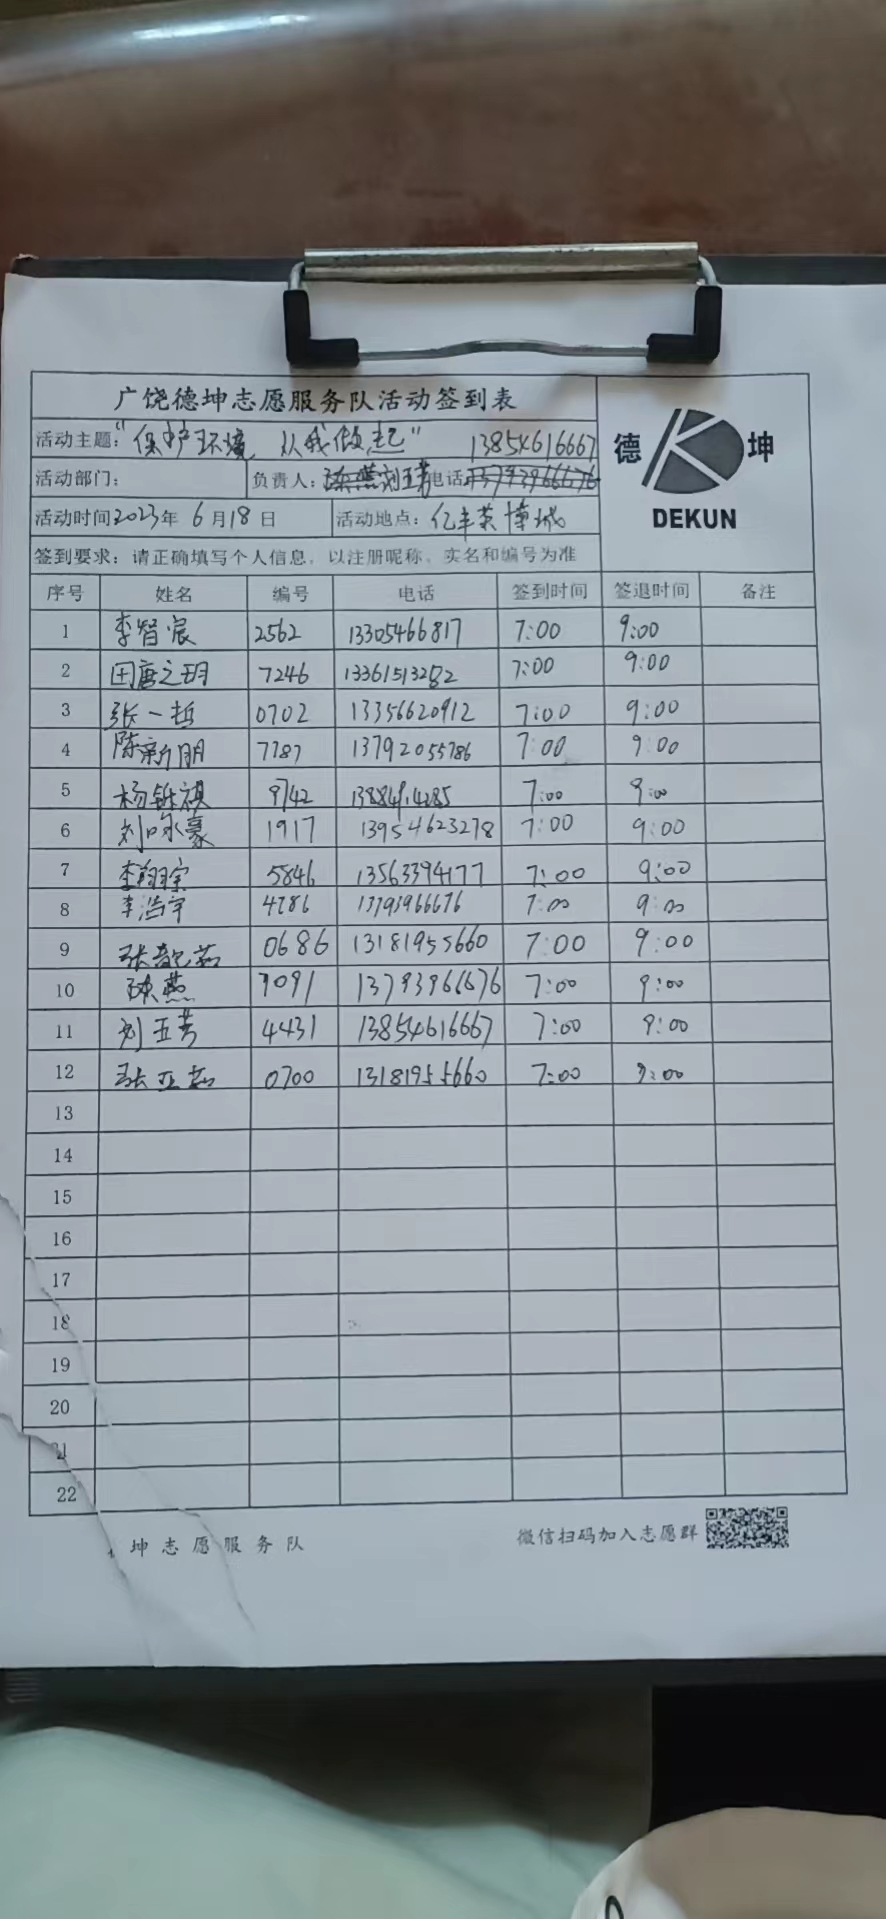 广饶德坤志愿服务队活动签到表
德 坤
DEKUN
活动主题:“保护环境,从我做起” 13854616667
活动部门: 负责人: 陈燕 刘玉芳 电话 13793966676
活动时间2023年 6月18日 活动地点: 亿丰英博城
签到要求: 请正确填写个人信息,以注册昵称、实名和编号为准
序号 姓名 编号 电话 签到时间 签退时间 备注
1 李智宸 2562 13305466817 7:00 9:00
2 田唐之玥 7246 13361513282 7:00 9:00
3 张一哲 0702 13356620912 7:00 9:00
4 陈新朋 7787 13792055786 7:00 9:00
5 杨铄祺 9742 7:00 9:00
6 刘咏豪 1917 13954623278 7:00 9:00
7 李翔宗 5846 13563394177 7:00 9:00
8 李浩宇 4786 13793966676 7:00 9:00
9 张懿茹 0686 13181955660 7:00 9:00
10 陈燕 7091 13793966676 7:00 9:00
11 刘玉芳 4431 13854616667 7:00 9:00
12 张亚茹 0700 13181955660 7:00 9:00
13
14
15
16
17
18
19
20
21
22
坤志愿服务队 微信扫码加入志愿群